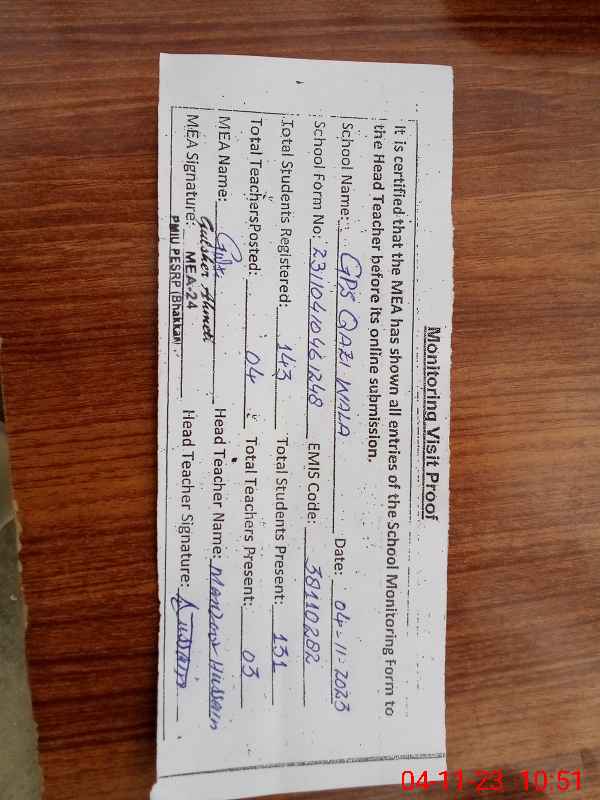 Monitoring Visit Proof
It is certified that the MEA has shown all entries of the School Monitoring Form to
the Head Teacher before its online submission.
School Name: GPS QAZI WALA Date: 04-11-2023
School Form No: 23110410461248 EMIS Code: 38110282
Total Students Registered: 143 Total Students Present: 131
Total TeachersPosted: 04 Total Teachers Present: 03
MEA Name: Head Teacher Name: Hussain
Gulsher Ahmed
MEA Signature: MEA-24 Head Teacher Signature: Hussain
PMIU PESRP (Bhakkar)
04-11-23 10:51